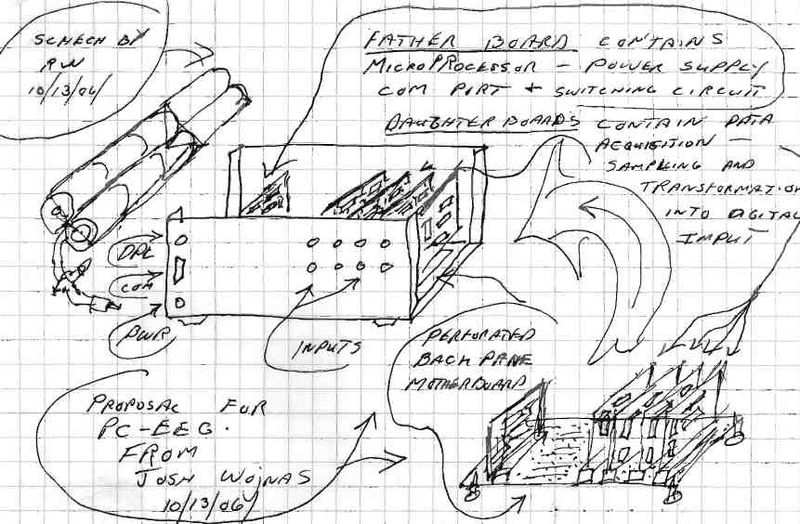 SCHECH BY
RW
10/13/06
FATHER BOARD CONTAINS
MICROPROCESSOR - POWER SUPPLY
COM PORT + SWITCHING CIRCUIT
DAUGHTER BOARDS CONTAIN DATA
ACQUISITION -
SAMPLING AND
TRANSFORMATION
INTO DIGITAL
INPUT
COM
PWR
INPUTS
PERFORATED
BACH PANE
MOTHERBOARD
PROPOSAL FOR
PC-EEG.
FROM
JOSH WOJNAS
10/13/06